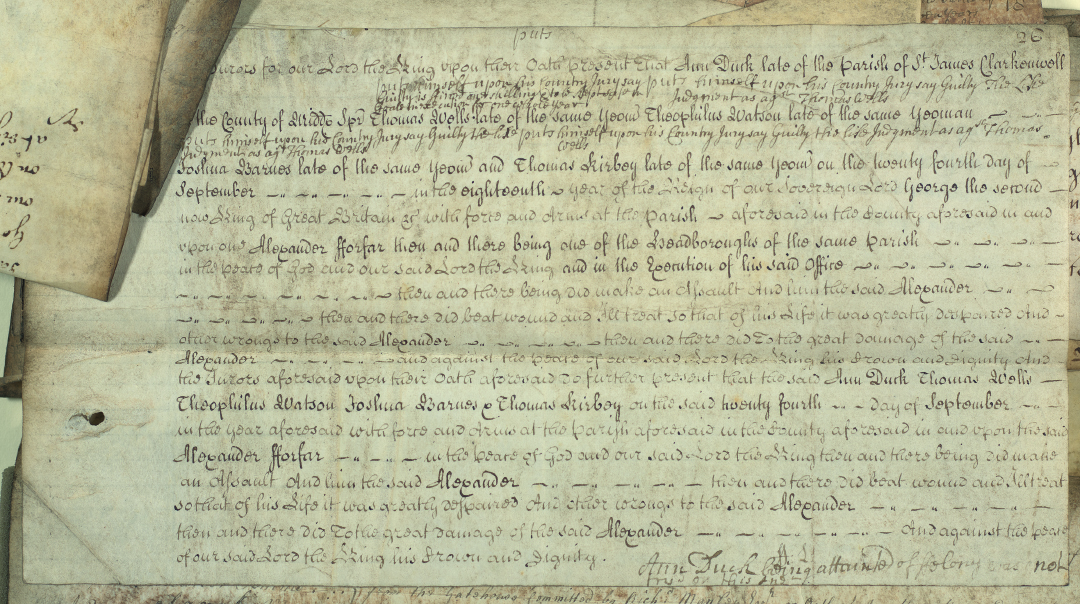 puts
26
Jurors for our Lord the King upon their Oath present that Ann Duck late of the Parish of St. James Clarkenwell
puts himself upon his Country Jury say puts himself upon his Country Jury say Guilty The like
Guilty is fined one shilling &
Judgment as agt. Thomas Wells
for one whole year
the County of Midd Spr Thomas Wells late of the same Yeom Theophilus Watson late of the same Yeoman
puts himself upon his Country Jury say Guilty the like puts himself upon his Country Jury say Guilty the like Judgment as agt Thomas
Judgment as agt Thomas Wells
Wells
Joshua Barnes late of the same Yeom and Thomas Kirbey late of the same Yeom on the twenty fourth day of
September in the eighteenth year of the Reign of our Sovereign Lord George the second
now King of Great Britain &c with force and Arms at the Parish aforesaid in the County aforesaid in and
upon one Alexander fforfar then and there being one of the Headboroughs of the same Parish
in the peace of God and our said Lord the King and in the Execution of his said Office
then and there being did make an Assault And him the said Alexander
then and there did beat wound and Ill treat so that of his Life it was greatly despaired And
other wrongs to the said Alexander then and there did To the great damage of the said
Alexander and against the peace of our said Lord the King his Crown and Dignity And
the Jurors aforesaid upon their Oath aforesaid Do further present that the said Ann Duck Thomas Wells
Theophilus Watson Joshua Barnes & Thomas Kirbey on the said twenty fourth day of September
in the year aforesaid with force and Arms at the Parish aforesaid in the County aforesaid in and upon the said
Alexander fforfar in the peace of God and our said Lord the King then and there being did make
an Assault And him the said Alexander then and there did beat wound and Ill treat
so that of his Life it was greatly despaired And other wrongs to the said Alexander
then and there did To the great damage of the said Alexander And against the peace
of our said Lord the King his Crown and Dignity.
Ann Duck being attainted of felony was not
try'd on this